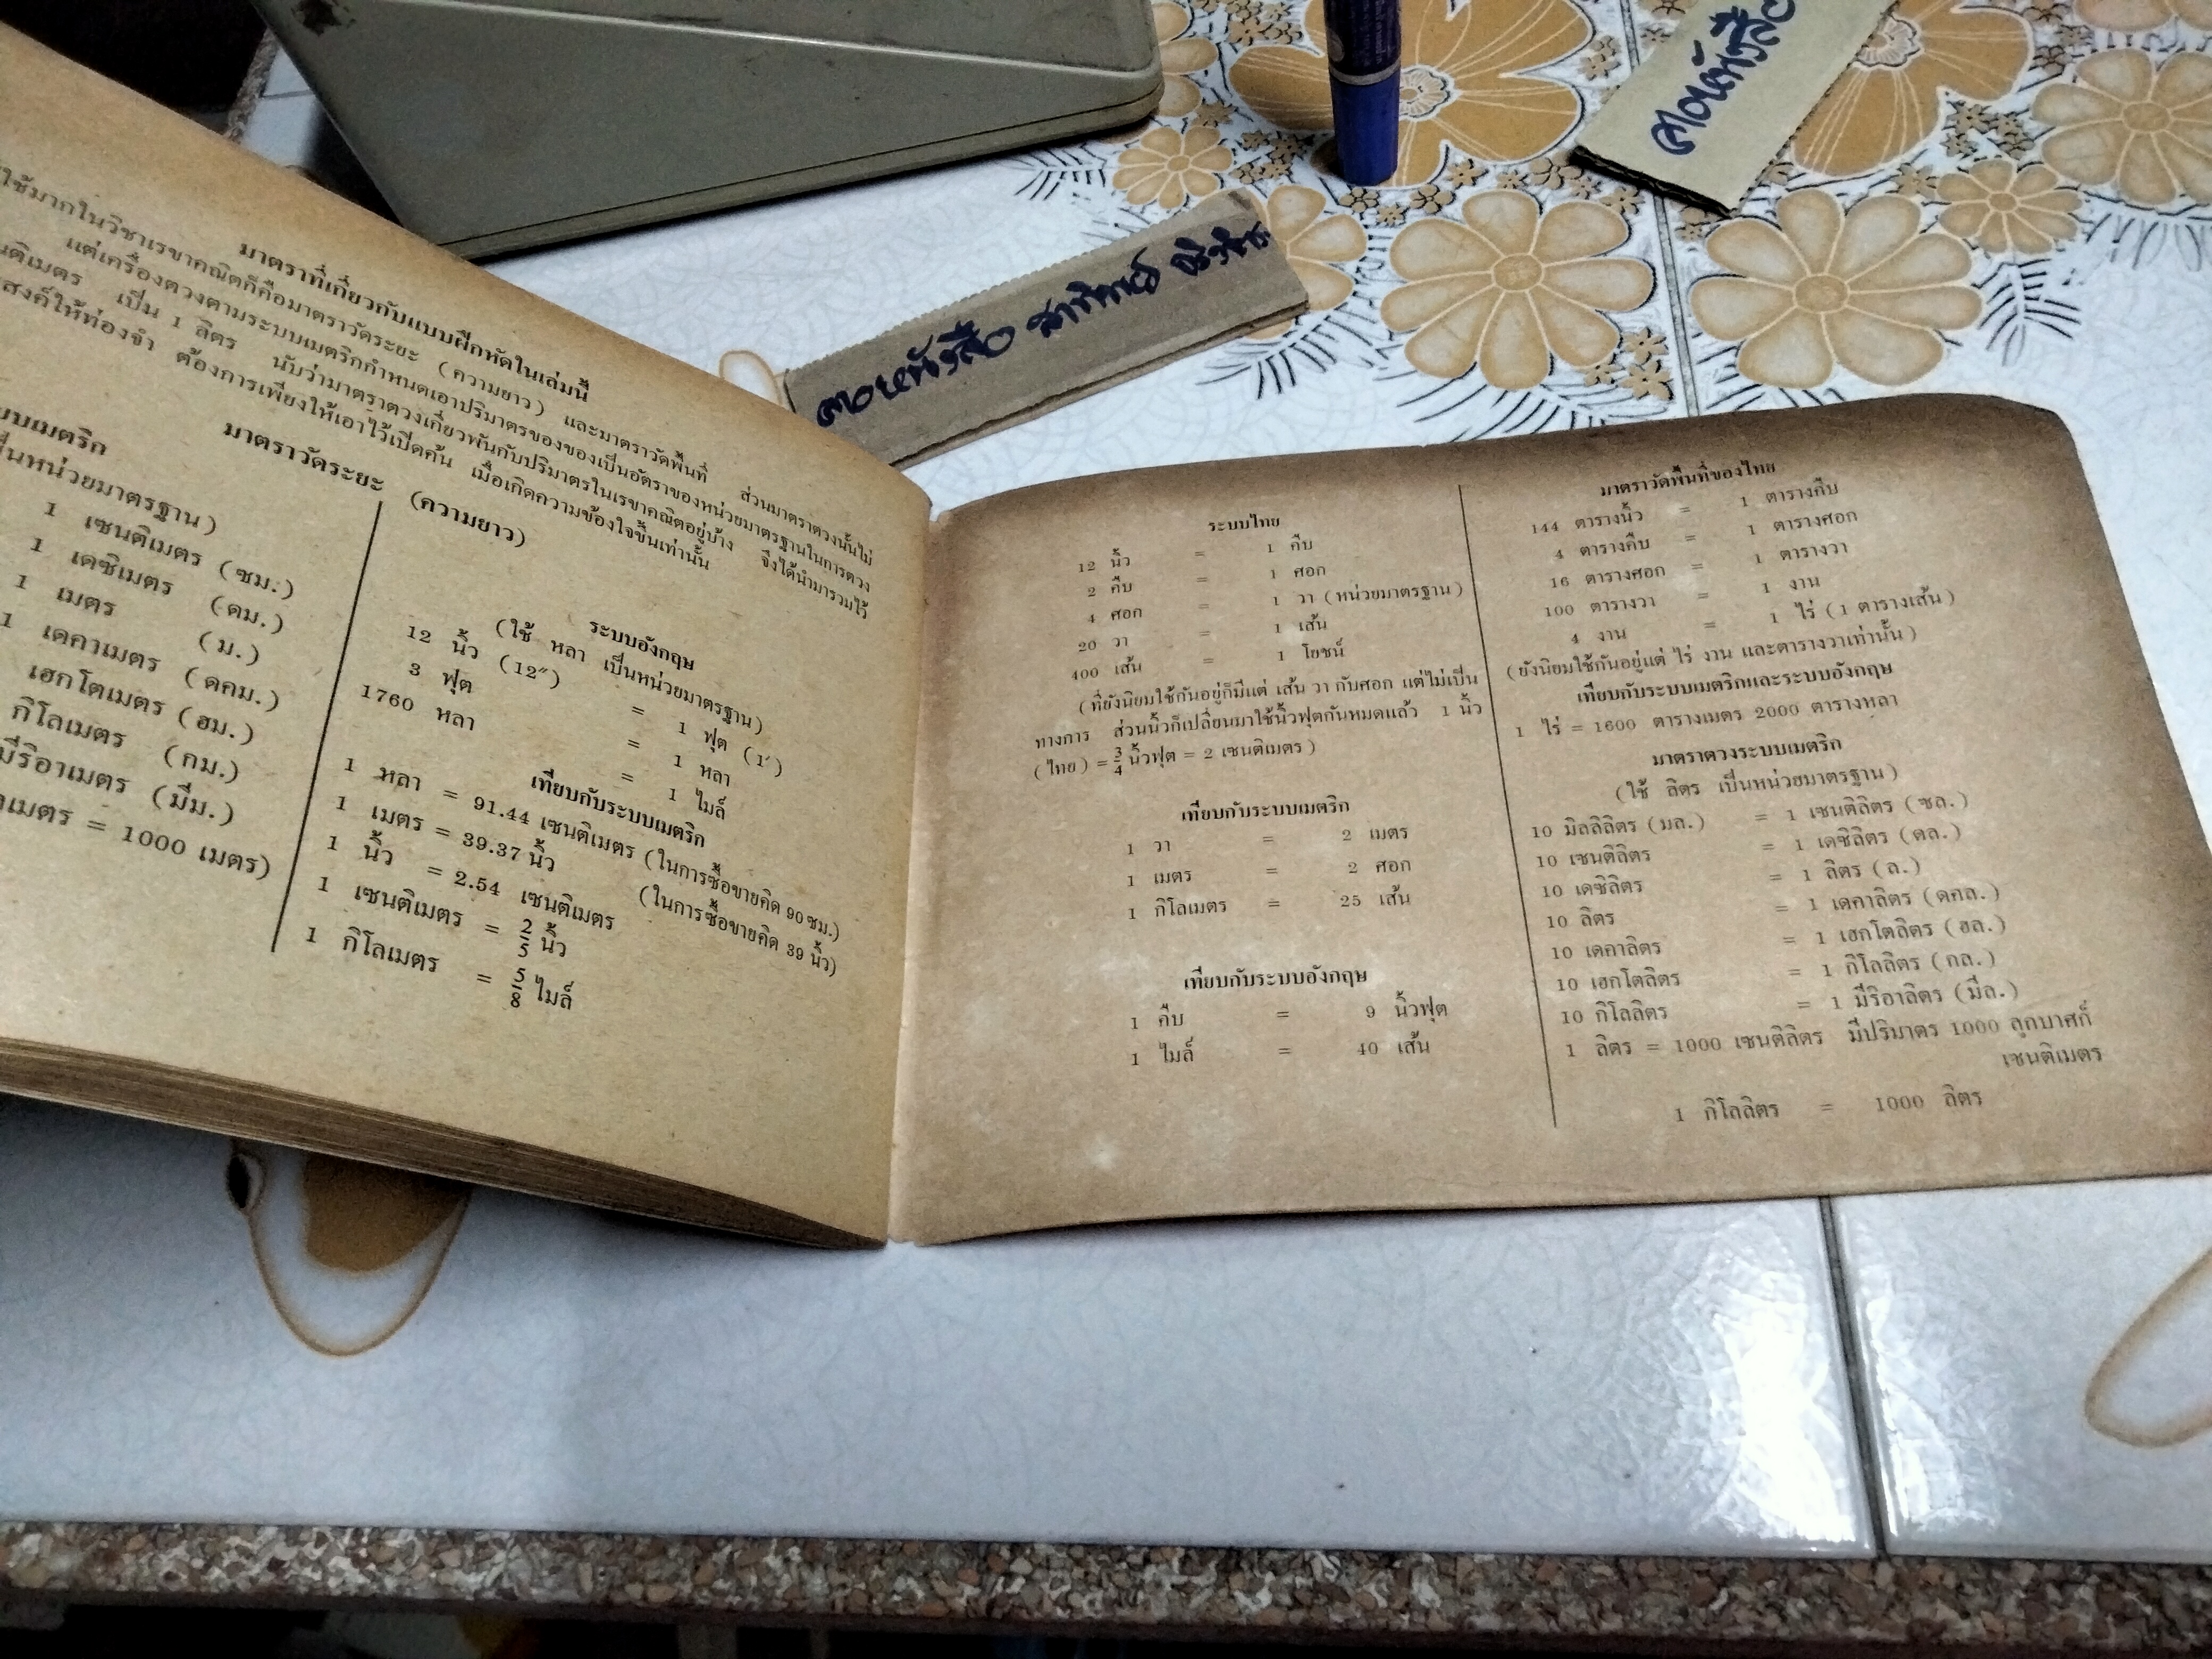 ลอนังสือ
ลอหนังสือ
มาตราที่เกี่ยวกับแบบฝึกหัดในเล่มนี้
ใช้มากในวิชาเรขาคณิตก็คือมาตราวัดระยะ (ความยาว) และมาตราวัดพื้นที่ ส่วนมาตราตวงนั้นไม่
แต่เครื่องตวงตามระบบเมตริกกำหนดเอาปริมาตรของของเป็นอัตราของหน่วยมาตรฐานในการตวง
เป็น 1 ลิตร นับว่ามาตราตวงเกี่ยวพันกับปริมาตรในเรขาคณิตอยู่บ้าง จึงได้นำมารวมไว้
ให้ท่องจำ ต้องการเพียงให้เอาไว้เปิดค้น เมื่อเกิดความข้องใจขึ้นเท่านั้น
มาตราวัดระยะ (ความยาว)
บบเมตริก
นหน่วยมาตรฐาน)
1 เซนติเมตร (ซม.)
1 เดซิเมตร (ดม.)
1 เมตร (ม.)
1 เดคาเมตร (ดคม.)
เฮกโตเมตร (ฮม.)
กิโลเมตร (กม.)
มีริอาเมตร (มีม.)
เมตร = 1000 เมตร)
ระบบอังกฤษ
(ใช้ หลา เป็นหน่วยมาตรฐาน)
12 นิ้ว (12″) = 1 ฟุต (1′)
3 ฟุต = 1 หลา
1760 หลา = 1 ไมล์
เทียบกับระบบเมตริก
1 หลา = 91.44 เซนติเมตร (ในการซื้อขายคิด 90 ซม.)
1 เมตร = 39.37 นิ้ว (ในการซื้อขายคิด 39 นิ้ว)
1 นิ้ว = 2.54 เซนติเมตร
1 เซนติเมตร = 2/5 นิ้ว
1 กิโลเมตร = 5/8 ไมล์
ระบบไทย
12 นิ้ว = 1 คืบ
2 คืบ = 1 ศอก
4 ศอก = 1 วา (หน่วยมาตรฐาน)
20 วา = 1 เส้น
400 เส้น = 1 โยชน์
(ที่ยังนิยมใช้กันอยู่ก็มีแต่ เส้น วา กับศอก แต่ไม่เป็น
ทางการ ส่วนนิ้วก็เปลี่ยนมาใช้นิ้วฟุตกันหมดแล้ว 1 นิ้ว
(ไทย) = 3/4 นิ้วฟุต = 2 เซนติเมตร)
เทียบกับระบบเมตริก
1 วา = 2 เมตร
1 เมตร = 2 ศอก
1 กิโลเมตร = 25 เส้น
เทียบกับระบบอังกฤษ
1 คืบ = 9 นิ้วฟุต
1 ไมล์ = 40 เส้น
มาตราวัดพื้นที่ของไทย
144 ตารางนิ้ว = 1 ตารางคืบ
4 ตารางคืบ = 1 ตารางศอก
16 ตารางศอก = 1 ตารางวา
100 ตารางวา = 1 งาน
4 งาน = 1 ไร่ (1 ตารางเส้น)
(ยังนิยมใช้กันอยู่แต่ ไร่ งาน และตารางวาเท่านั้น)
เทียบกับระบบเมตริกและระบบอังกฤษ
1 ไร่ = 1600 ตารางเมตร 2000 ตารางหลา
มาตราตวงระบบเมตริก
(ใช้ ลิตร เป็นหน่วยมาตรฐาน)
10 มิลลิลิตร (มล.) = 1 เซนติลิตร (ซล.)
10 เซนติลิตร = 1 เดซิลิตร (ดล.)
10 เดซิลิตร = 1 ลิตร (ล.)
10 ลิตร = 1 เดคาลิตร (ดคล.)
10 เดคาลิตร = 1 เฮกโตลิตร (ฮล.)
10 เฮกโตลิตร = 1 กิโลลิตร (กล.)
10 กิโลลิตร = 1 มีริอาลิตร (มีล.)
1 ลิตร = 1000 เซนติลิตร มีปริมาตร 1000 ลูกบาศก์
เซนติเมตร
1 กิโลลิตร = 1000 ลิตร